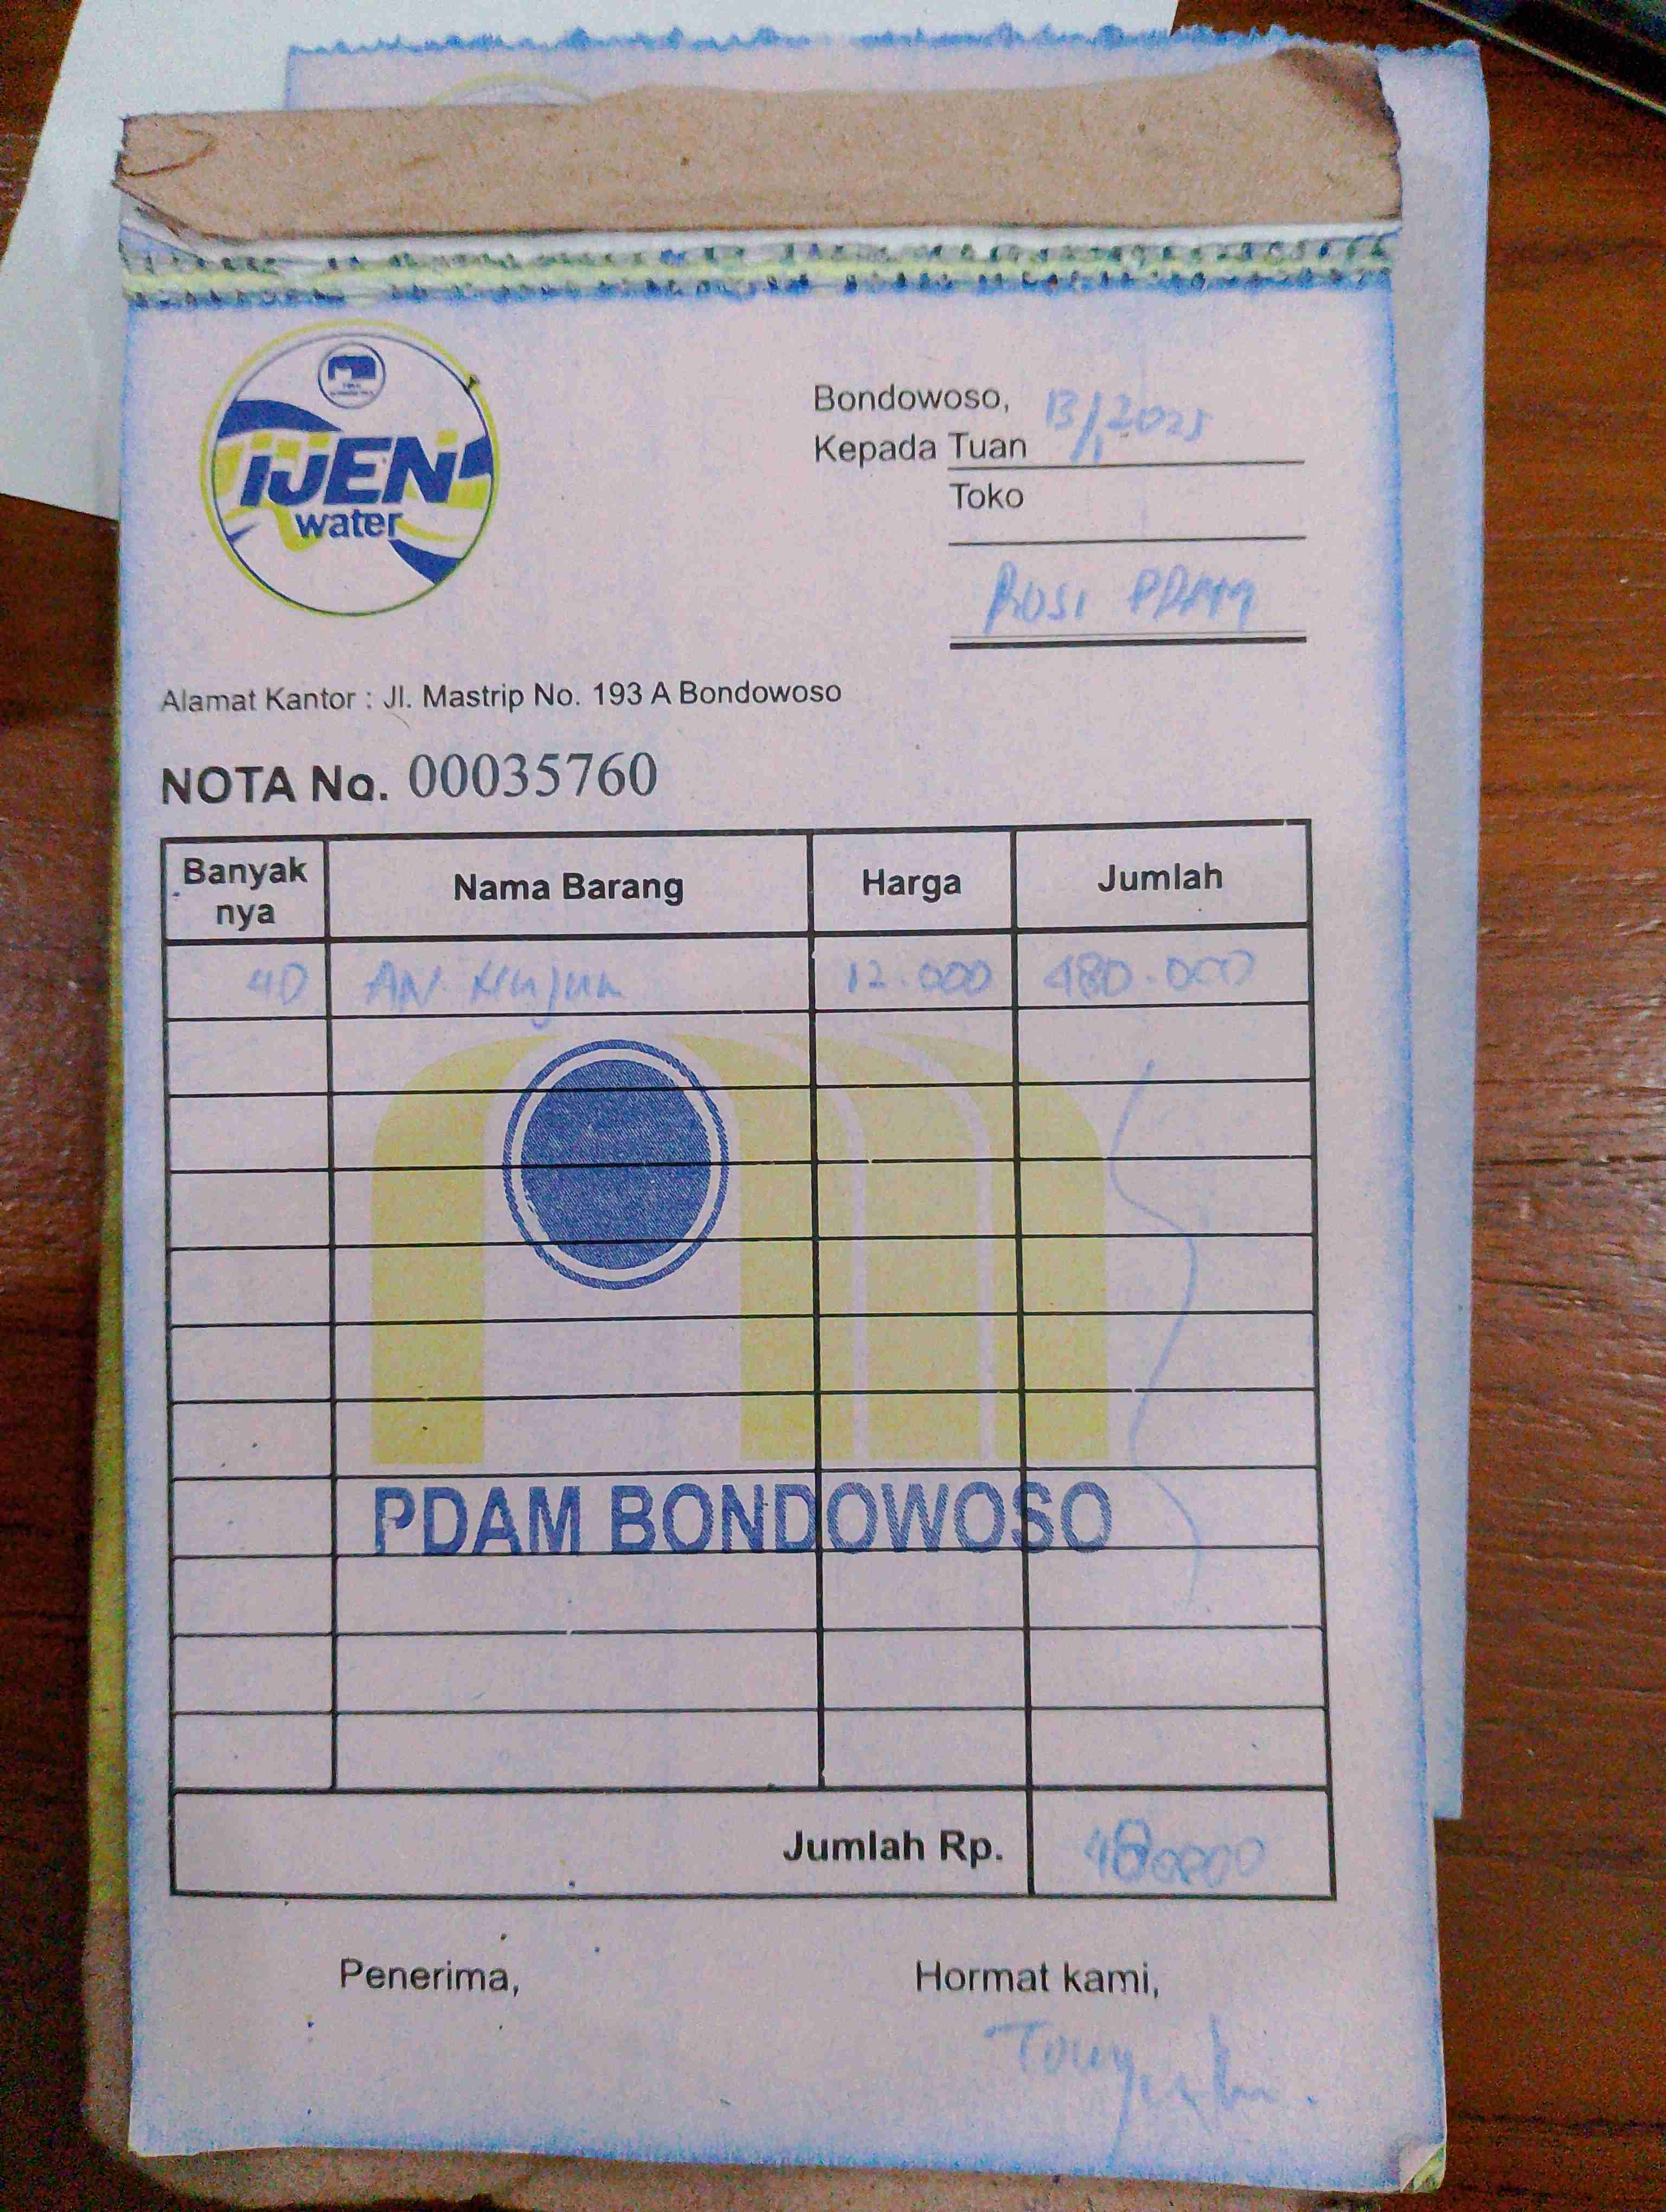 IJEN
water
Bondowoso, 13/1 2025
Kepada Tuan
Toko
Rosi PDAM
Alamat Kantor : Jl. Mastrip No. 193 A Bondowoso
NOTA No. 00035760
Banyak nya Nama Barang Harga Jumlah
40 AN. 12.000 480.000
PDAM BONDOWOSO
Jumlah Rp. 480000
Penerima, Hormat kami,